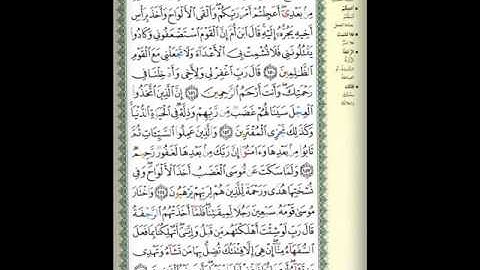 مِنۢ بَعْدِىٓ أَعَجِلْتُمْ أَمْرَ رَبِّكُمْ وَأَلْقَى ٱلْأَلْوَاحَ وَأَخَذَ بِرَأْسِ
أَخِيهِ يَجُرُّهُۥٓ إِلَيْهِ قَالَ ٱبْنَ أُمَّ إِنَّ ٱلْقَوْمَ ٱسْتَضْعَفُونِى وَكَادُوا۟
يَقْتُلُونَنِى فَلَا تُشْمِتْ بِىَ ٱلْأَعْدَآءَ وَلَا تَجْعَلْنِى مَعَ ٱلْقَوْمِ
ٱلظَّـٰلِمِينَ ١٥٠ قَالَ رَبِّ ٱغْفِرْ لِى وَلِأَخِى وَأَدْخِلْنَا فِى
رَحْمَتِكَ وَأَنتَ أَرْحَمُ ٱلرَّٰحِمِينَ ١٥١ إِنَّ ٱلَّذِينَ ٱتَّخَذُوا۟
ٱلْعِجْلَ سَيَنَالُهُمْ غَضَبٌ مِّن رَّبِّهِمْ وَذِلَّةٌ فِى ٱلْحَيَوٰةِ ٱلدُّنْيَا
وَكَذَٰلِكَ نَجْزِى ٱلْمُفْتَرِينَ ١٥٢ وَٱلَّذِينَ عَمِلُوا۟ ٱلسَّيِّـَٔاتِ ثُمَّ
تَابُوا۟ مِنۢ بَعْدِهَا وَءَامَنُوٓا۟ إِنَّ رَبَّكَ مِنۢ بَعْدِهَا لَغَفُورٌ رَّحِيمٌ
١٥٣ وَلَمَّا سَكَتَ عَن مُّوسَى ٱلْغَضَبُ أَخَذَ ٱلْأَلْوَاحَ وَفِى
نُسْخَتِهَا هُدًى وَرَحْمَةٌ لِّلَّذِينَ هُمْ لِرَبِّهِمْ يَرْهَبُونَ ١٥٤ وَٱخْتَارَ
مُوسَىٰ قَوْمَهُۥ سَبْعِينَ رَجُلًا لِّمِيقَـٰتِنَا فَلَمَّآ أَخَذَتْهُمُ ٱلرَّجْفَةُ
قَالَ رَبِّ لَوْ شِئْتَ أَهْلَكْتَهُم مِّن قَبْلُ وَإِيَّـٰىَ أَتُهْلِكُنَا بِمَا فَعَلَ
ٱلسُّفَهَآءُ مِنَّآ إِنْ هِىَ إِلَّا فِتْنَتُكَ تُضِلُّ بِهَا مَن تَشَآءُ وَتَهْدِى